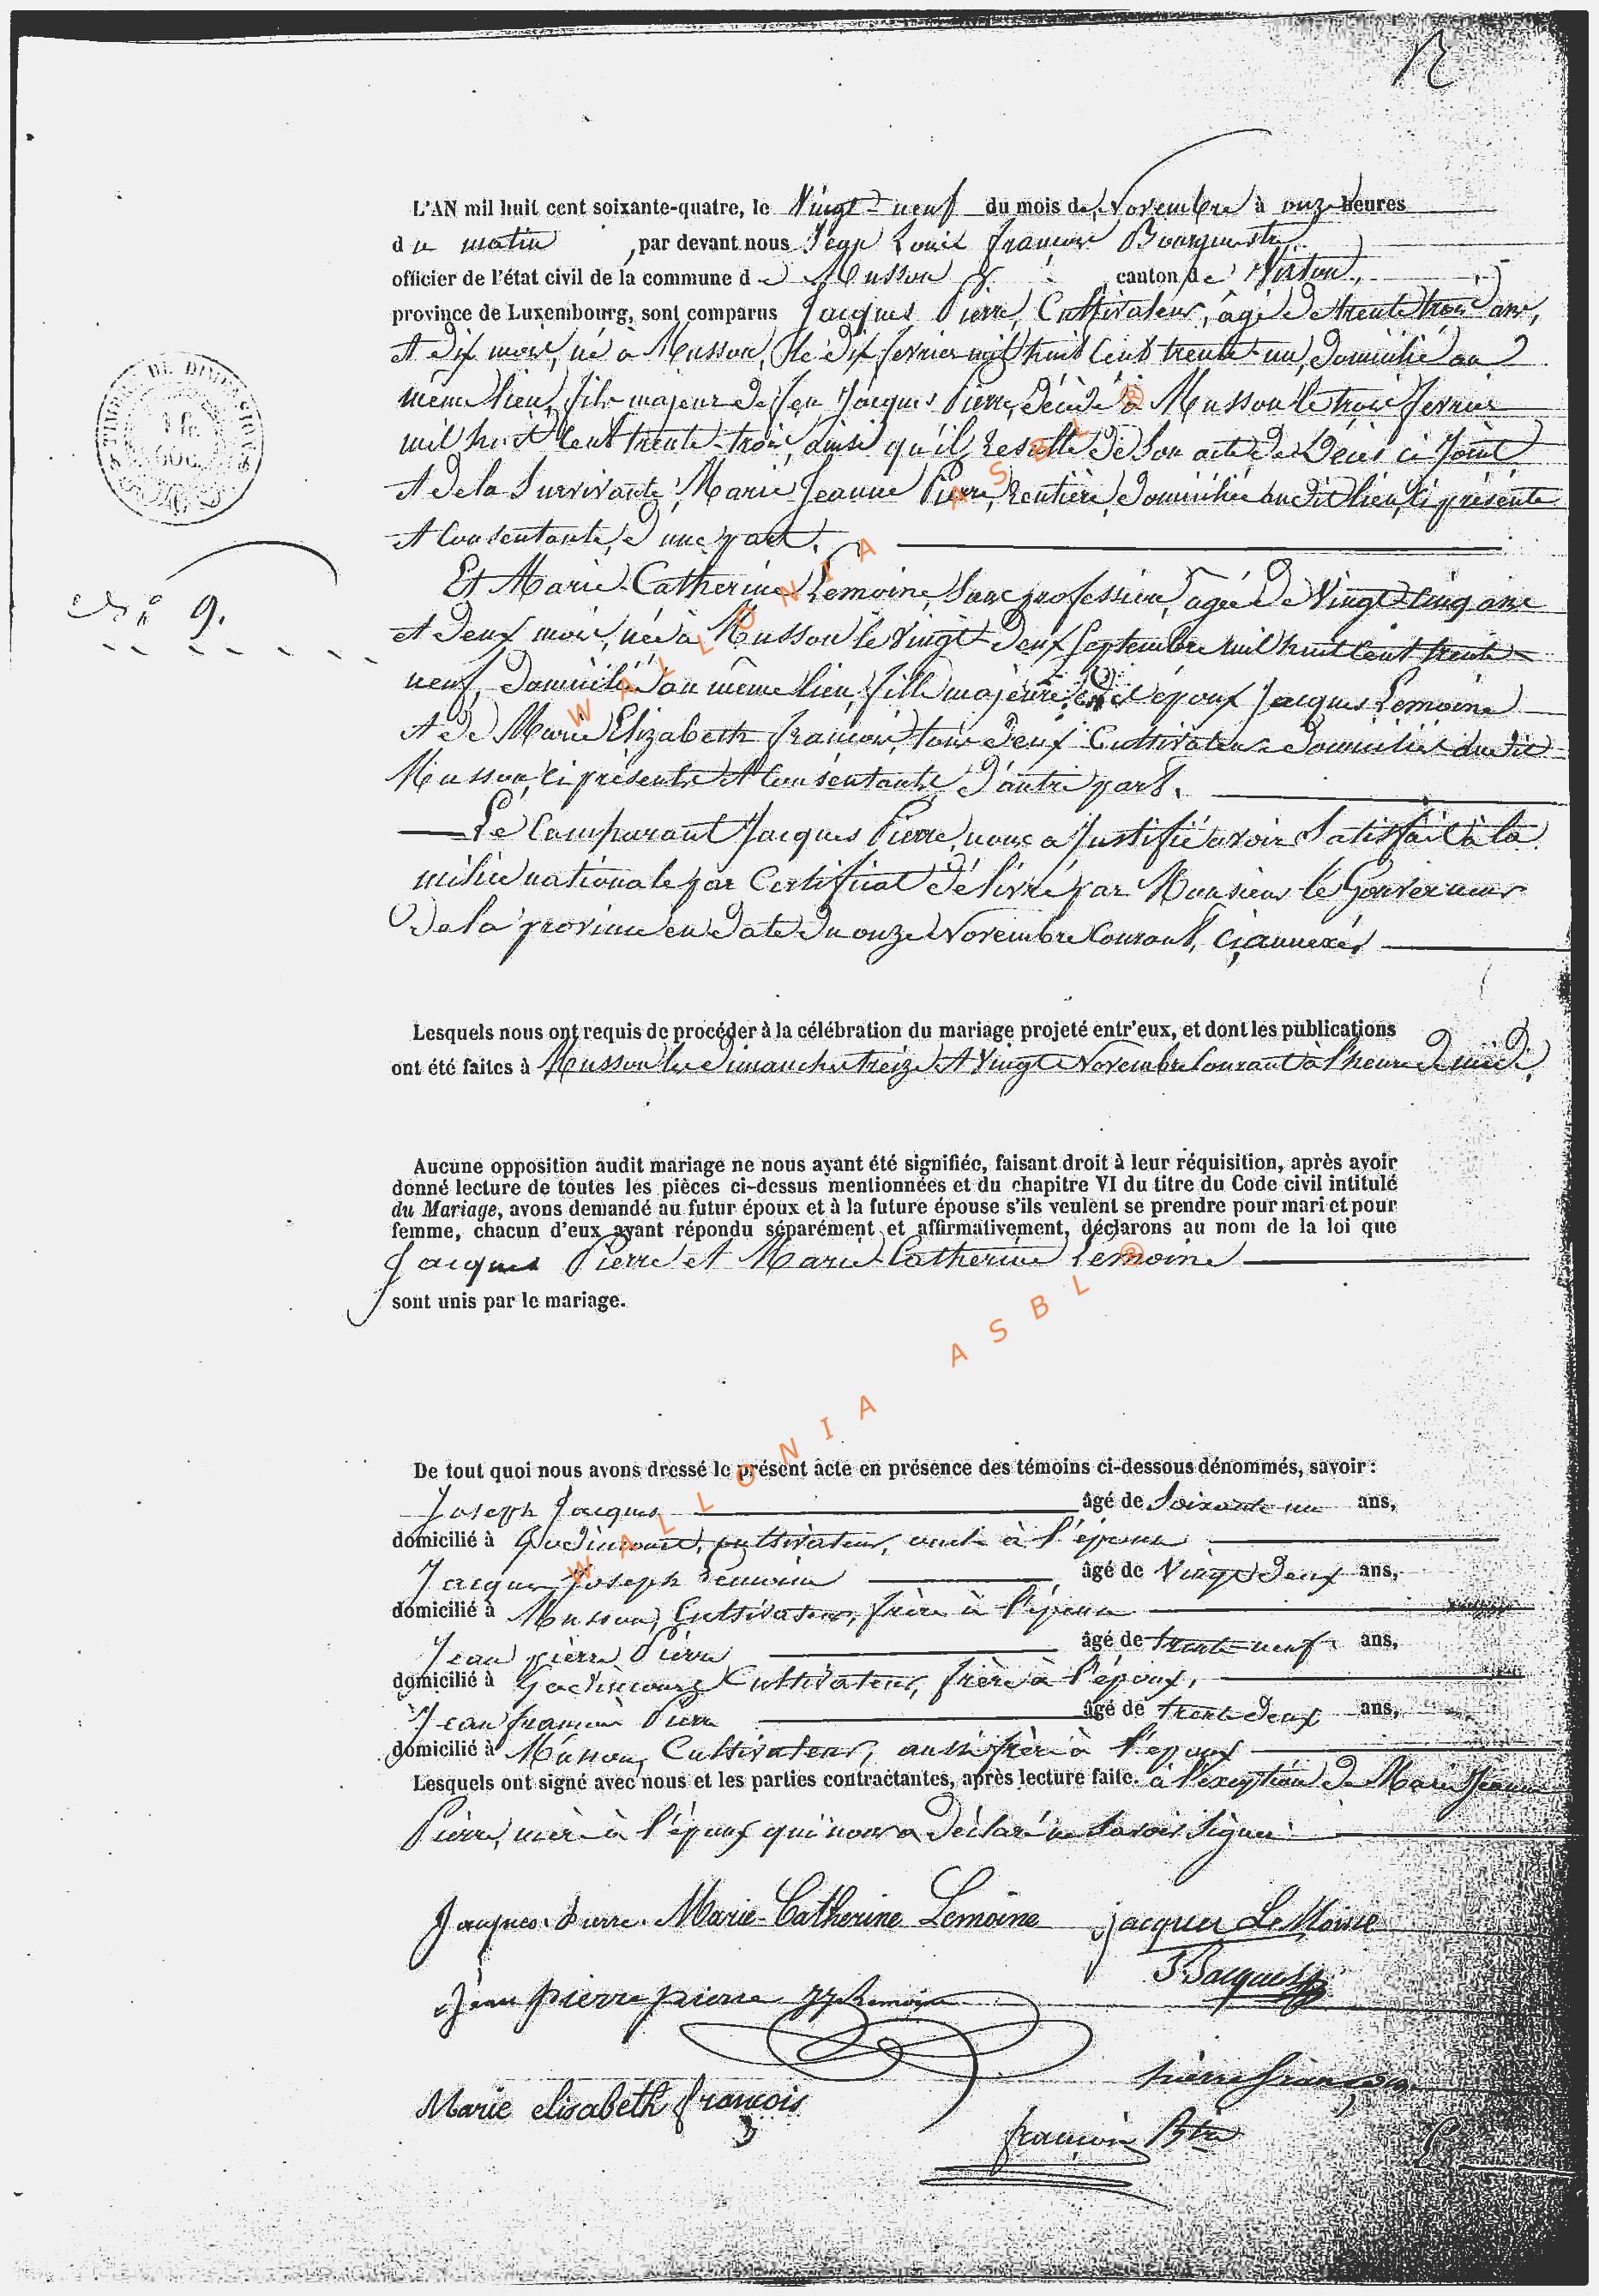 12
L'AN mil huit cent soixante-quatre, le Vingt-neuf du mois de Novembre à onze heures
du matin, par devant nous Jean Louis François Bourguest
officier de l'état civil de la commune de Musson canton de Virton,
province de Luxembourg, sont comparus Jacques Pierre, Cultivateur, âgé de trente trois ans,
et dix mois, né à Musson, le dix fevrier mil huit cent trente-un, Domicilié au
même lieu, fils majeur de feu Jacques Pierre, décédé à Musson le trois fevrier
mil huit cent trente-trois, ainsi qu'il resulte de son acte de Décès ci joint
et de la Survivante Marie Jeanne Pierre, Rentière, domiciliée audit lieu, ci présente
et Consentante, d'une part.
N° 9.
Et Marie-Catherine Lemoine, sans profession, agée de Vingt-cinq ans
et deux mois, née à Musson le vingt-deux Septembre mil huit cent trente-
neuf, domiciliée au même lieu, fille majeure des époux Jacques Lemoine
et de Marie Elizabeth François, tous deux Cultivateurs domiciliés audit
Musson, ci présents et Consentants d'autre part.
Le Comparant Jacques Pierre, nous a justifié avoir Satisfait à la
milice nationale par Certificat délivré par Monsieur le Gouverneur
de la province en date du onze Novembre Courant, ci annexé,
Lesquels nous ont requis de procéder à la célébration du mariage projeté entr'eux, et dont les publications
ont été faites à Musson les dimanches treize et Vingt Novembre Courant à l'heure de midi,
Aucune opposition audit mariage ne nous ayant été signifiée, faisant droit à leur réquisition, après avoir
donné lecture de toutes les pièces ci-dessus mentionnées et du chapitre VI du titre du Code civil intitulé
du Mariage, avons demandé au futur époux et à la future épouse s'ils veulent se prendre pour mari et pour
femme, chacun d'eux ayant répondu séparément et affirmativement, déclarons au nom de la loi que
Jacques Pierre et Marie-Catherine Lemoine
sont unis par le mariage.
De tout quoi nous avons dressé le présent acte en présence des témoins ci-dessous dénommés, savoir :
Joseph Jacques âgé de Soixante un ans,
domicilié à Godincourt, cultivateur, oncle à l'épouse
Jacques Joseph Lemoine âgé de Vingt Deux ans,
domicilié à Musson, Cultivateur, frère à l'épouse
Jean pierre Pierre âgé de trente-neuf ans,
domicilié à Godincourt Cultivateur, frère à l'époux,
Jean françois Pierre âgé de trente Deux ans,
domicilié à Musson, Cultivateur, aussi frère à l'époux
Lesquels ont signé avec nous et les parties contractantes, après lecture faite. à l'exception de Marie Jeanne
Pierre, mère à l'époux qui nous a déclaré ne savoir signer
Jacques Pierre. Marie-Catherine Lemoine jacques LeMoine
Jean pierre pierre JJ Lemoine J Jacques
Marie elisabeth francois pierre françois
françois
WALLONIA ASBL ®
WALLONIA ASBL ®